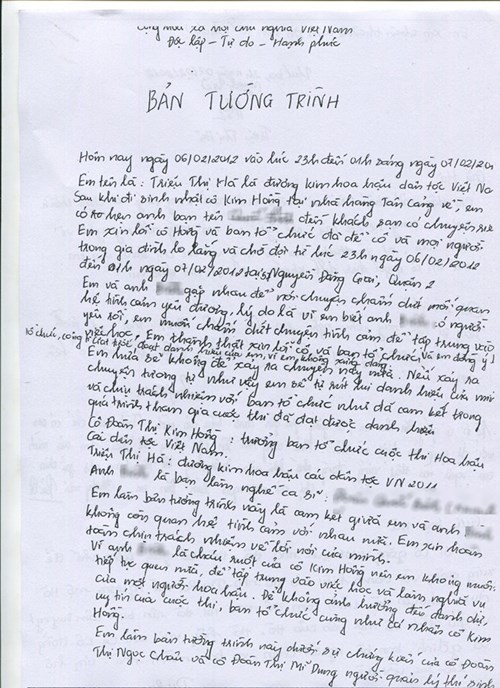 Cộng hòa xã hội chủ nghĩa Việt Nam
Độc lập - Tự do - Hạnh phúc
BẢN TƯỜNG TRÌNH
Hôm nay ngày 06/02/2012 vào lúc 23h đến 01h sáng ngày 07/02/201
Em tên là: Triệu Thị Hà là đương kim hoa hậu dân tộc Việt Na
Sau khi đi sinh nhật cô Kim Hồng tại nhà hàng Tân Cảng về, em
có hẹn anh bạn tên đến khách sạn có chuyện riê
Em xin lỗi cô Hồng và ban tổ chức đã để cô và mọi người
trong gia đình lo lắng và chờ đợi từ lúc 23h ngày 06/02/2012
đến 01h ngày 07/02/2012 tại Nguyễn Đăng Giai, Quận 2
Em và anh gặp nhau để nói chuyện chấm dứt mối quan
hệ tình cảm yêu đương, lý do là vì em biết anh có người
yêu rồi, em muốn chấm dứt chuyện tình cảm để tập trung vào
việc học, Em thành thật xin lỗi cô và ban tổ chức và em đồng ý
tổ chức, công tước đoạt danh hiệu của em, vì em không xứng đáng.
Em hứa sẽ không để xảy ra chuyện này nữa. Nếu xảy ra
chuyện tương tự như vậy em sẽ tự rút lui danh hiệu của mì
và chịu trách nhiệm với ban tổ chức như đã cam kết trong
quá trình tham gia cuộc thi đã đạt được danh hiệu
Cô Đoàn Thị Kim Hồng: trưởng ban tổ chức cuộc thi Hoa hậu
các dân tộc Việt Nam.
Triệu Thị Hà: đương kim hoa hậu các dân tộc VN 2011
Anh là bạn làm nghề ca sĩ:
Em làm bản tường trình này là cam kết giữa em và anh
không còn quan hệ tình cảm với nhau nữa. Em xin hoàn
toàn chịu trách nhiệm về lời nói của mình.
Vì anh là cháu ruột của cô Kim Hồng nên em không muốn
tiếp tục quen nữa, để tập trung vào việc học và làm nghĩa vụ
của một người hoa hậu. Để không ảnh hưởng đến danh dự,
uy tín của cuộc thi, ban tổ chức cũng như cá nhân cô Kim
Hồng.
Em làm bản tường trình này dưới sự chứng kiến của cô Đoàn
Thị Ngọc Châu và cô Đoàn Thị Mĩ Dung người quản lý thí sinh